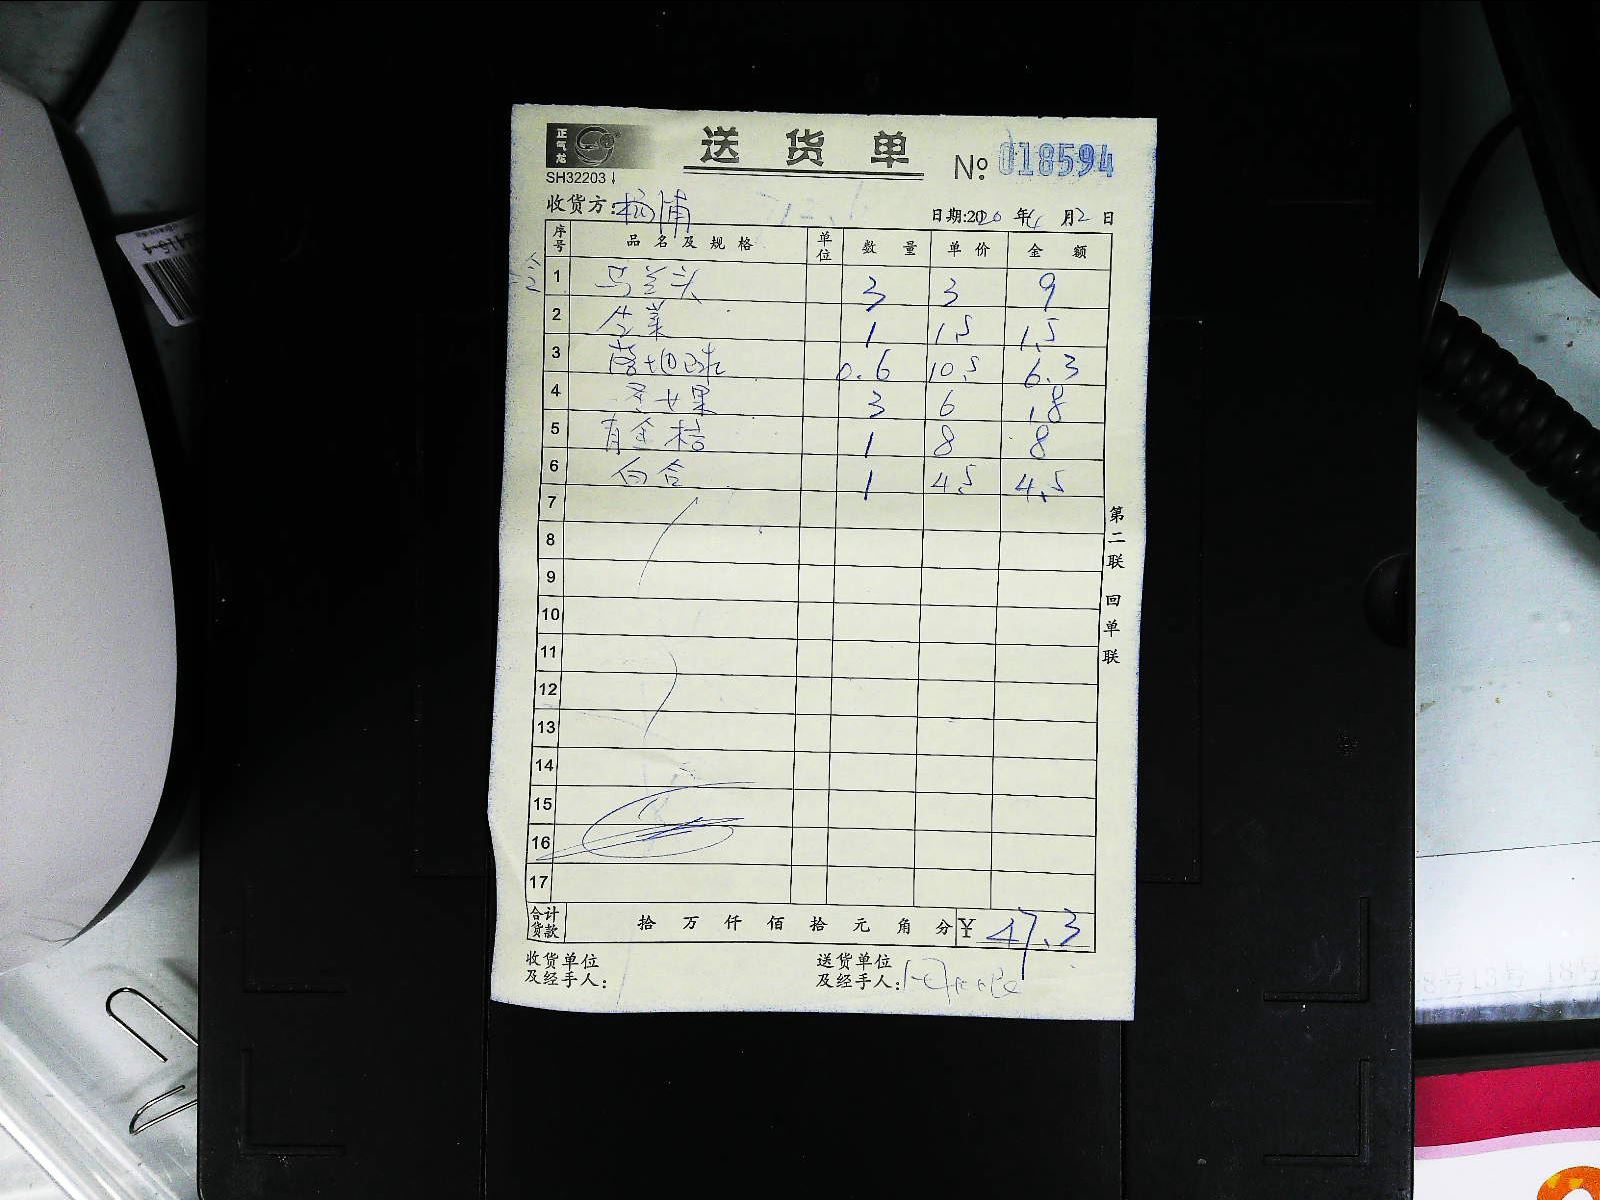 正气龙
送货单
SH32203
№ 018594
收货方:杨浦
日期:2020年4月2日
序号 品名及规格 单位 数量 单价 金额
1 马兰头 3 3 9
2 生菜 1 1.5 1.5
3 0.6 10.5 6.3
4 圣女果 3 6 18
5 青金桔 1 8 8
6 百合 1 4.5 4.5
7
8
9
10
11
12
13
14
15
16
17
合计货款 拾万仟佰拾元角分 ¥ 47.3
收货单位及经手人:
送货单位及经手人:
第二联 回单联